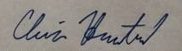 Chris Hunter